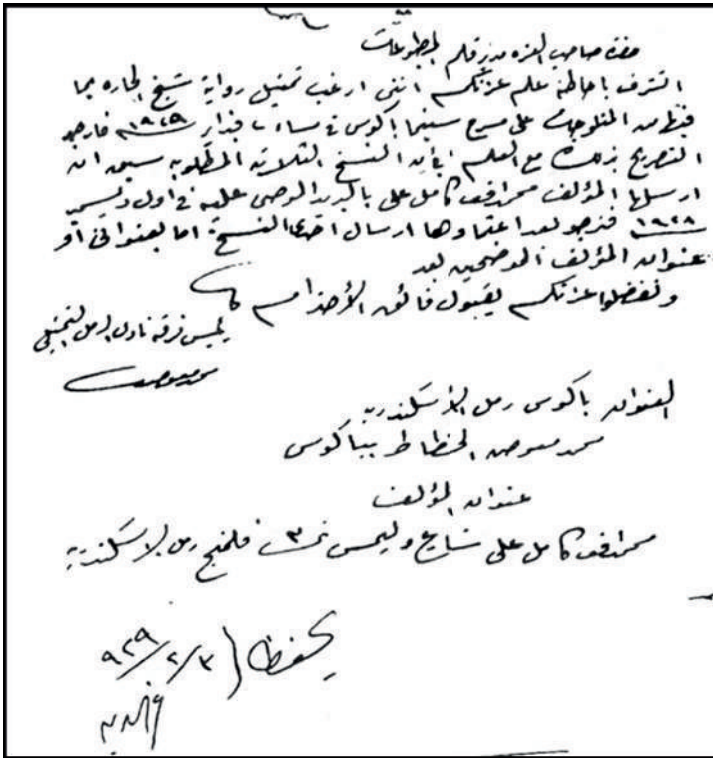 حضرة صاحب العزة مدير قلم المطبوعات
اتشرف باحاطة علم عزتكم انني ارغب تمثيل رواية شيخ الحاره بما
فيها من المنلوجات على مسرح سينما باكوس في مساء فبراير ١٩٢٩ فارجو
التصريح بذلك مع العلم بأن النسخ الثلاثة المطلوبه سبق ان
ارسلها المؤلف محمد افندى كامل على بالبريد الموصى عليه في اول ديسمبر
١٩٢٨ فنرجو بعد اعتمادها ارسال احدى النسخة اما بعنوانى أو
عنوان المؤلف الموضحين بعد
وتفضلوا عزتكم بقبول فائق الأحترام
رئيس فرقة نادى الرمل التمثيلي
محمد معوض
العنوان باكوس رمل الأسكندرية
محمد معوض الخطاط بباكوس
عنوان المؤلف
محمد افندى كامل على شارع وليمس نمرة ٣ فلمنج رمل الاسكندرية
يحفظ
٩٢٩/٢/٣